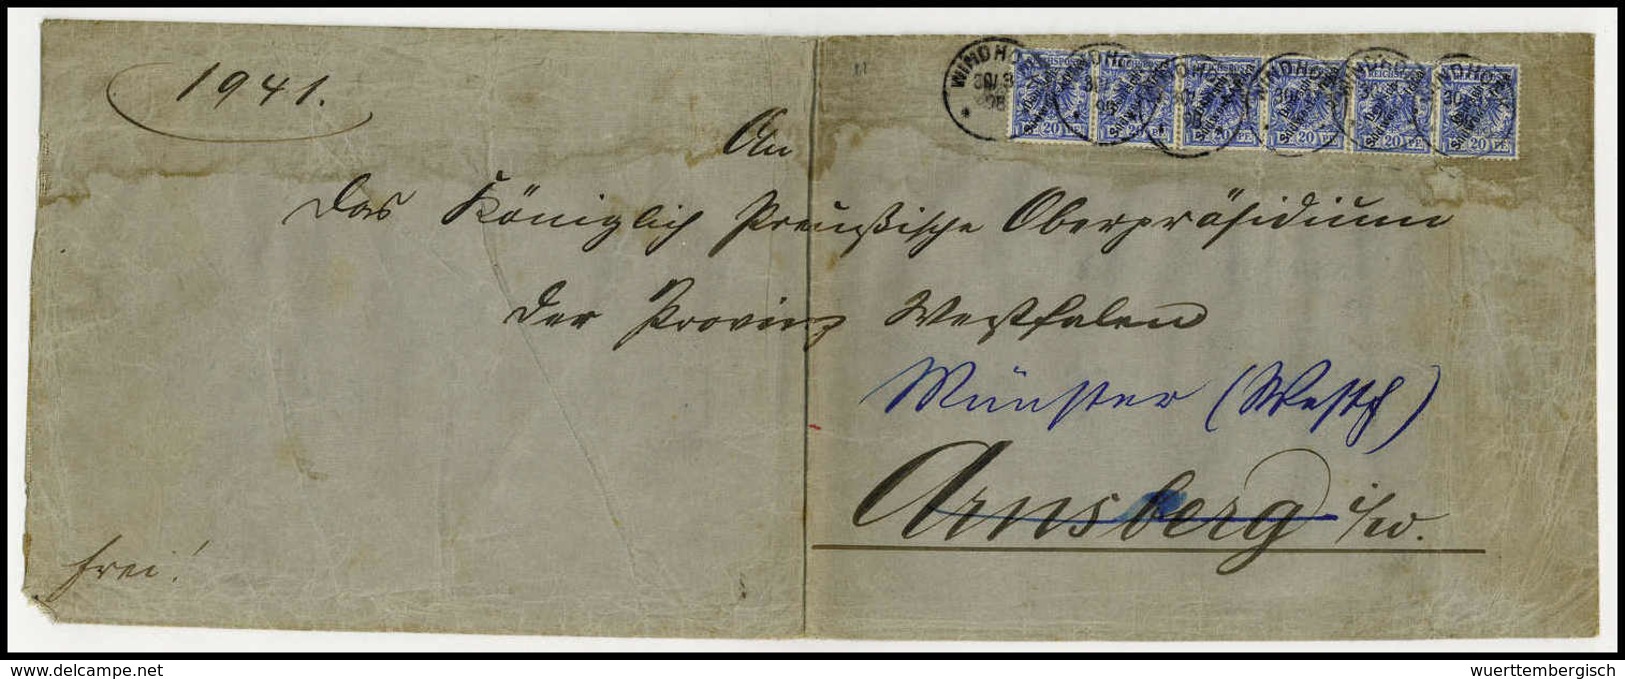 1941.
WINDHOEK 30/8 98
REICHSPOST Deutsch-Südwest-Afrika 20 PF
An
das Königlich Preußische Oberpräsidium
der Provinz Westfalen
Münster (Westf)
Arnsberg i/w.
frei!
www.delcampe.net
wuerttembergisch